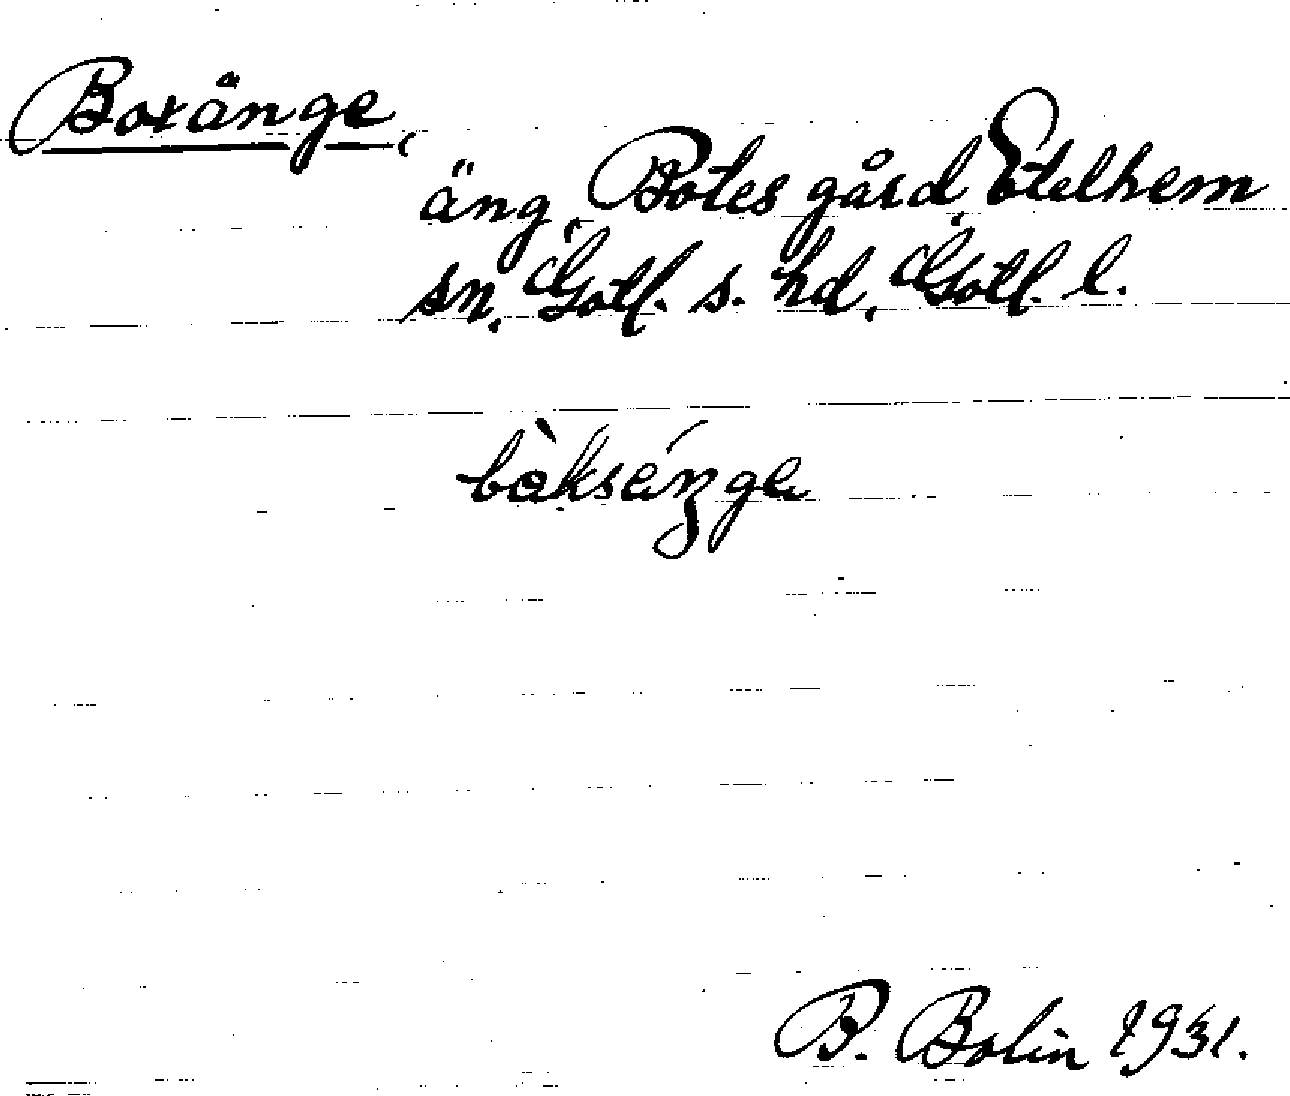 Boxänge,
äng, Botes gård, Etelhem
sn, Gotl. s. hd, Gotl. l.
bàkseŋge
B. Bolin 1931.